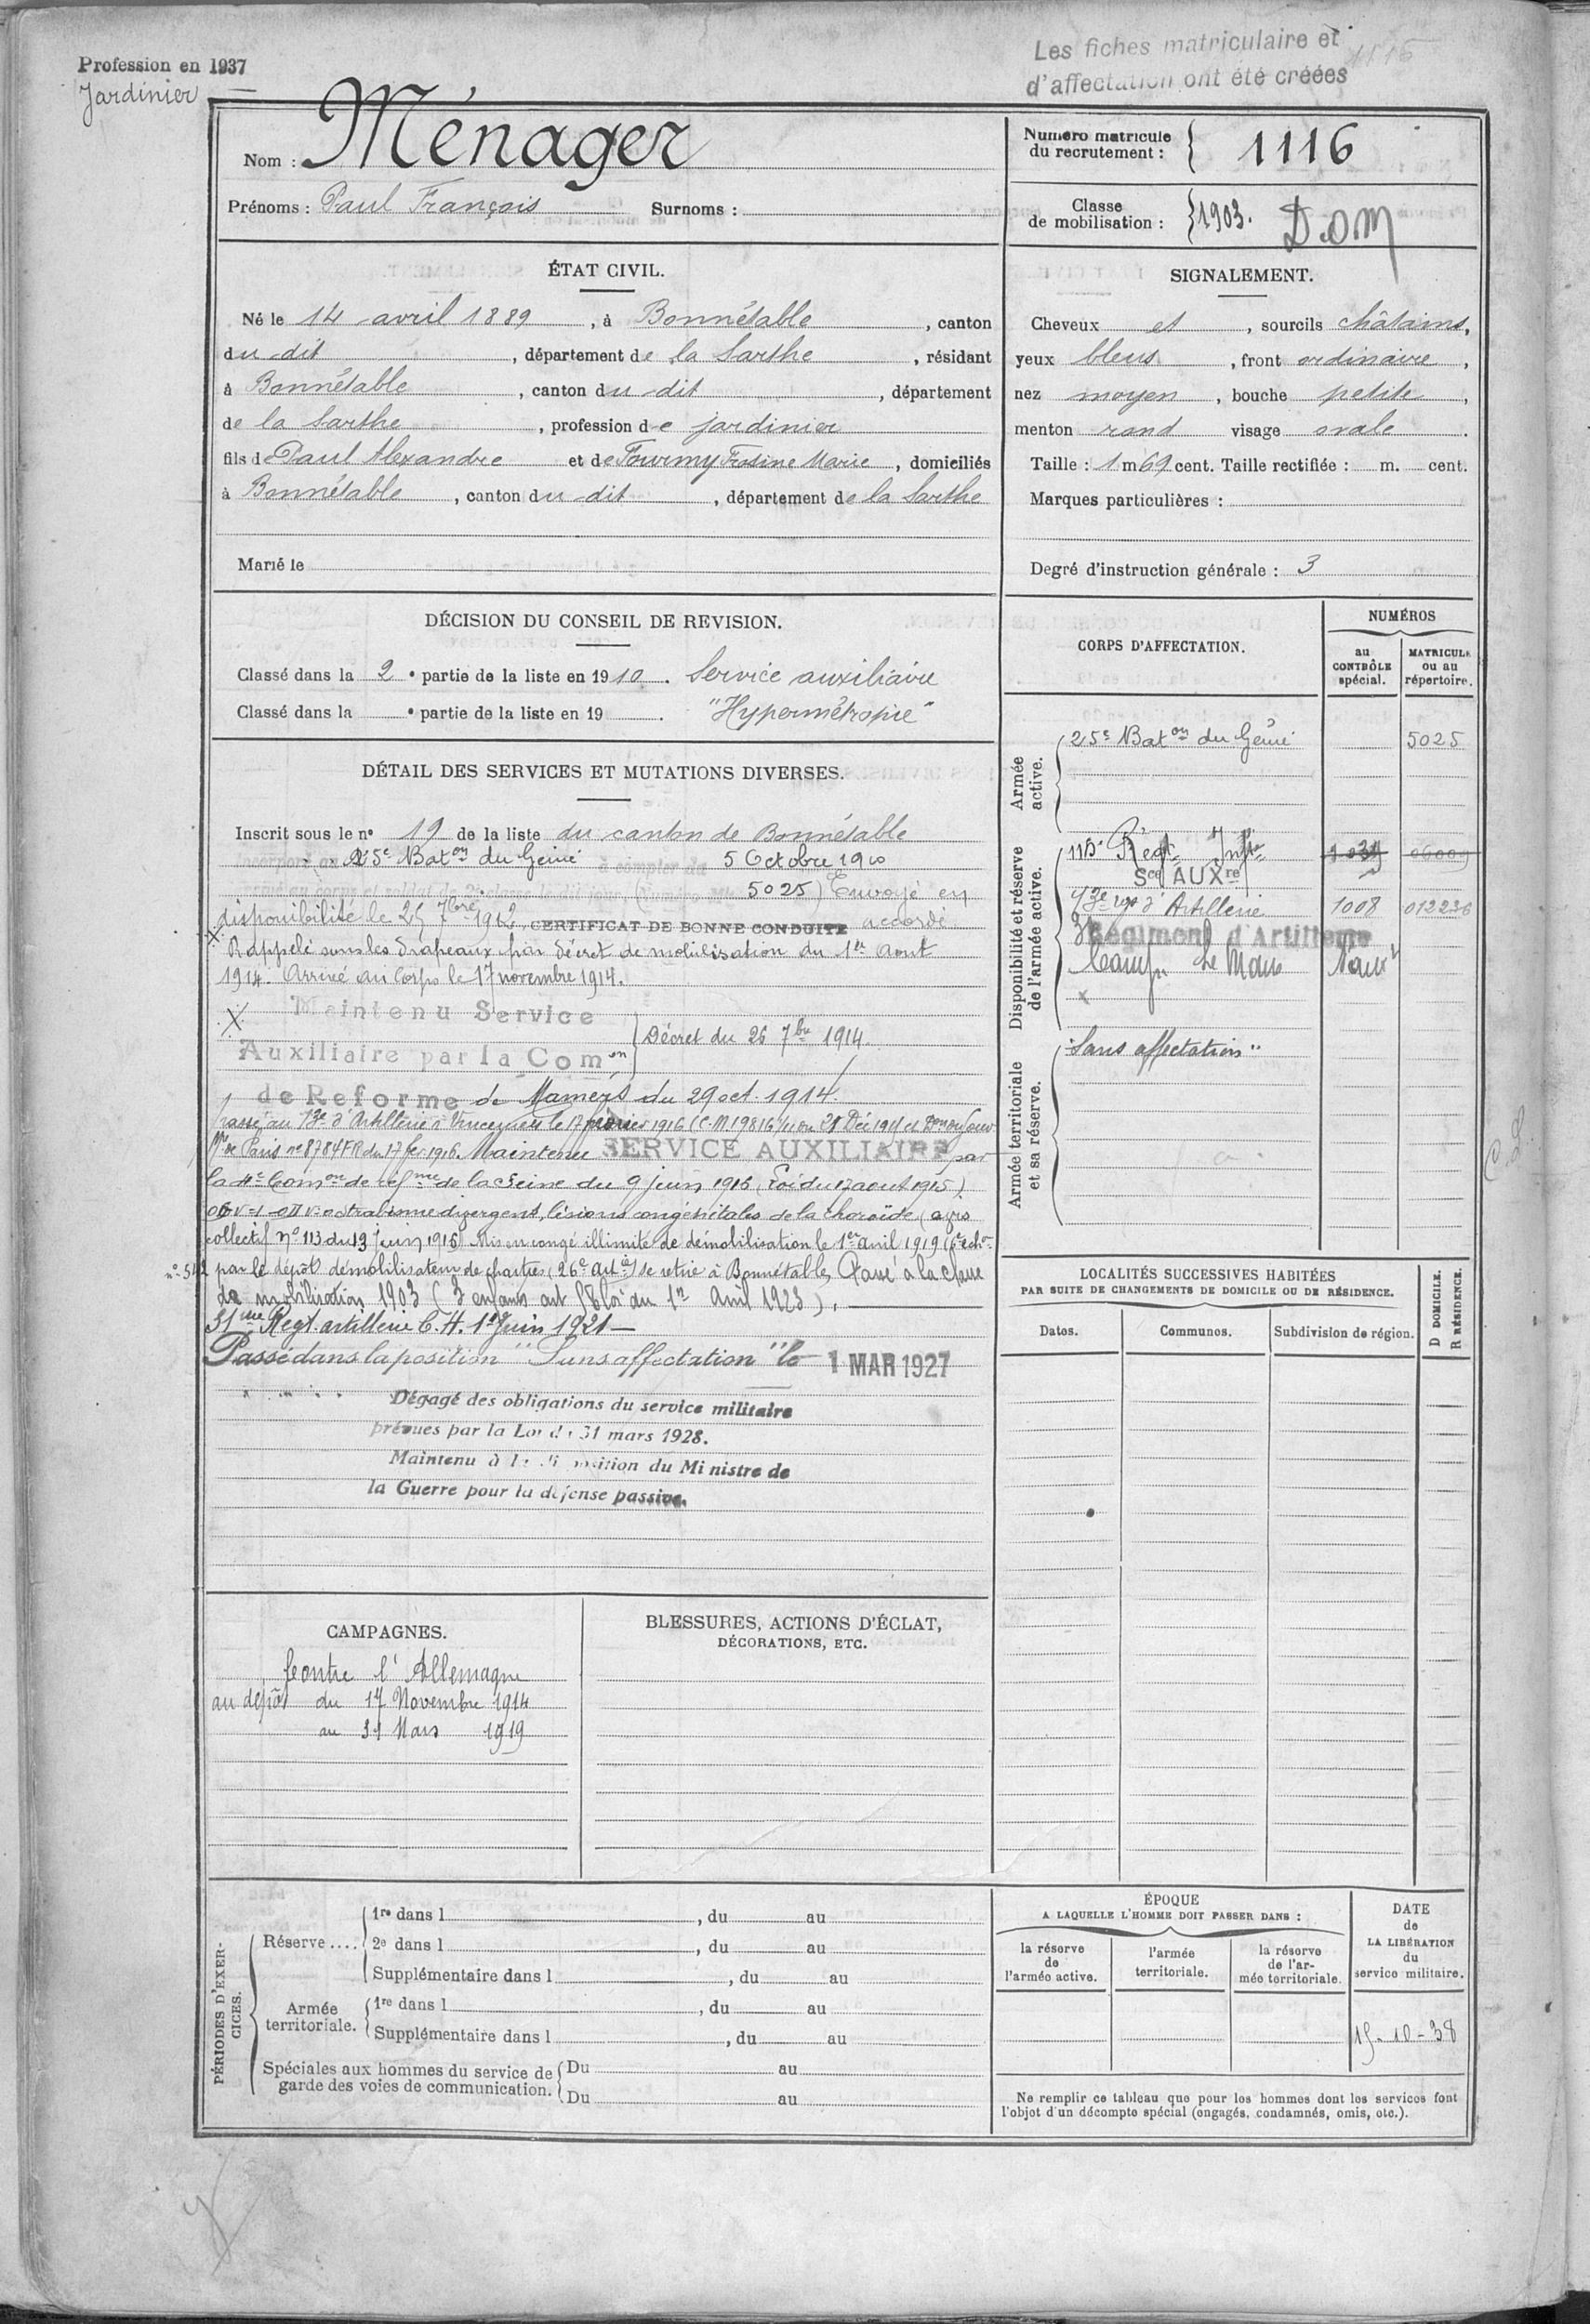 Profession en 1937
Jardinier
Les fiches matriculaire et
d'affectation ont été créées
Nom : Ménager
Prénoms : Paul François Surnoms :
Numéro matricule
du recrutement : 1116
Classe
de mobilisation : 1903. D.O.M
ÉTAT CIVIL.
Né le 14 avril 1889, à Bonnétable, canton
du dit, département de la Sarthe, résidant
à Bonnétable, canton du dit, département
de la Sarthe, profession de jardinier
fils de Paul Alexandre et de Fourmy Frosine Marie, domiciliés
à Bonnétable, canton du dit, département de la Sarthe
Marié le
SIGNALEMENT.
Cheveux et, sourcils châtains,
yeux bleus, front ordinaire,
nez moyen, bouche petite,
menton rond visage ovale.
Taille : 1 m 69 cent. Taille rectifiée : m. cent.
Marques particulières :
Degré d'instruction générale : 3
DÉCISION DU CONSEIL DE REVISION.
Classé dans la 2e partie de la liste en 1910. Service auxiliaire
Classé dans la e partie de la liste en 19 . "Hypermétropie"
DÉTAIL DES SERVICES ET MUTATIONS DIVERSES.
Inscrit sous le no 19 de la liste du canton de Bonnétable
Incorporé au 25e Baton du Génie à compter du 5 Octobre 1910
5025) Envoyé en
disponibilité le 25 7bre 1912, CERTIFICAT DE BONNE CONDUITE accordé
Rappelé sous les drapeaux par décret de mobilisation du 1er Aout
1914. Arrivé au Corps le 17 novembre 1914.
Maintenu Service
Auxiliaire par la Comon
Décret du 26 7bre 1914.
de Reforme de Mamers du 29 oct. 1914.
passé au 13e d'Artillerie à Vincennes le 17 février 1916 (C.M 19816 du 28 Déc 1915 et
de Paris no 8784 FR du 17 fer 1916. Maintenu SERVICE AUXILIAIRE par
la 4e Comon de réfme de la Seine du 9 juin 1916 (Loi du 17 aout 1915)
strabisme divergent, lésions congénitales de la choroïde (avis
collectif no 113 du 13 juin 1916) Mis en congé illimité de démobilisation le 1er avril 1919 (6e échon
no 512 par le dépôt démobilisateur de Chartres (26e artie) se retire à Bonnétable, Passé à la classe
de mobilisation 1903 (3 enfants art 58 loi du 1er Avril 1923).
31me Regt. artillerie C.H. 1er Juin 1921
Passé dans la position "Sans affectation" le 1 MAR 1927
Dégagé des obligations du service militaire
prévues par la Loi du 31 mars 1928.
Maintenu à la disposition du Ministre de
la Guerre pour la défense passive.
CORPS D'AFFECTATION.
NUMÉROS
au
CONTRÔLE
spécial.
MATRICULE
ou au
répertoire.
Armée
active.
25e Baton du Génie 5025
Disponibilité et réserve
de l'armée active.
115e Régt Infie 1034 06009
Sce AUXre
13e rgt d'Artillerie 1008 012236
Régiment d'Artillerie
Camp Le Mans
Armée territoriale
et sa réserve.
"Sans affectation"
LOCALITÉS SUCCESSIVES HABITÉES
PAR SUITE DE CHANGEMENTS DE DOMICILE OU DE RÉSIDENCE.
Dates. Communes. Subdivision de région.
D DOMICILE.
R RÉSIDENCE.
CAMPAGNES.
Contre l'Allemagne
au dépôt du 17 Novembre 1914
au 31 Mars 1919
BLESSURES, ACTIONS D'ÉCLAT,
DÉCORATIONS, ETC.
PÉRIODES D'EXER-
CICES.
Réserve....
1re dans l , du au
2e dans l , du au
Supplémentaire dans l , du au
Armée
territoriale.
1re dans l , du au
Supplémentaire dans l , du au
Spéciales aux hommes du service de
garde des voies de communication.
Du au
Du au
ÉPOQUE
A LAQUELLE L'HOMME DOIT PASSER DANS :
la réserve
de
l'armée active.
l'armée
territoriale.
la réserve
de l'ar-
mée territoriale.
DATE
de
LA LIBÉRATION
du
service militaire.
15-10-38
Ne remplir ce tableau que pour les hommes dont les services font
l'objet d'un décompte spécial (engagés, condamnés, omis, etc.).